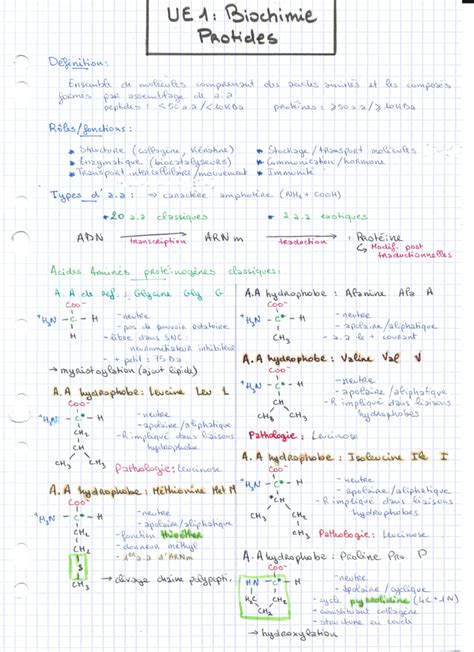 UE1: Biochimie
Protides
Définition:
Ensemble de molécules comprenant des acides aminés et les composés
formés par assemblage de a.a
peptides: <50 a.a / <10KDa protéines: ≥50 a.a / ≥10KDa
Rôles/fonctions:
Structure (collagène, Kératine)
Enzymatique (biocatalyseurs)
Transport intercellulaire/mouvement
Stockage/transport molécules
Communication/hormone
Immunité
Types d'a.a: → caractère amphotère (NH2 + COOH)
20 a.a classiques
2 a.a exotiques
ADN transcription ARNm traduction Protéine
Modif. post
traductionnelles
Acides Aminés protéinogènes classiques:
A.A de réf: Glycine Gly G
COO-
+H3N - C - H
H
- neutre
- pas de pouvoir rotatoire
- libre dans SNC:
neuromédiateur inhibiteur
- + petit: 75Da
→ myristoylation (ajout lipide)
A.A hydrophobe: Alanine Ala A
COO-
+H3N - C* - H
CH3
- neutre
- apolaire/aliphatique
- a.a le + courant
A.A hydrophobe: Valine Val V
COO-
+H3N - C* - H
CH
CH3 CH3
- neutre
- apolaire/aliphatique
- R impliqué dans liaisons
hydrophobes
Pathologie: Leucinose
A.A hydrophobe: Leucine Leu L
COO-
+H3N - C* - H
CH2
CH
CH3 CH3
- neutre
- apolaire/aliphatique
- R impliqué dans liaisons
hydrophobe
Pathologie: Leucinose
A.A hydrophobe: Isoleucine Ile I
COO-
+H3N - C* - H
CH3
- neutre
- apolaire/aliphatique
- R impliqué dans liaisons
hydrophobes
Pathologie: Leucinose
A.A hydrophobe: Méthionine Met M
COO-
+H3N - C* - H
CH2
CH2
S
CH3
- neutre
- apolaire/aliphatique
- fonction thioéther
- donneur méthyl
- 1er a.a d'ARNm
→ clivage chaîne polypepti.
A.A hydrophobe: Proline Pro P
COO-
HN - C* - H
H2C CH2
CH2
- neutre
- apolaire/cyclique
- cycle pyrrolidine (4C+1N)
- constituant collagène
- structure en coude
→ hydroxylation